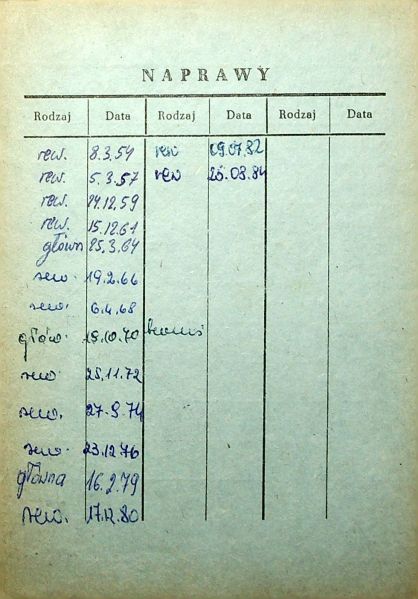 NAPRAWY
Rodzaj Data Rodzaj Data Rodzaj Data
rew. 8.3.54 rew 09.07.82
rew. 5.3.57 rew 26.03.84
rew. 14.12.59
rew. 15.12.61
główn 25.3.64
rew. 19.2.66
rew. 6.4.68
głów. 19.10.70
rew. 25.11.72
rew. 27.9.74
rew. 23.12.76
główna 16.2.79
rew. 17.12.80